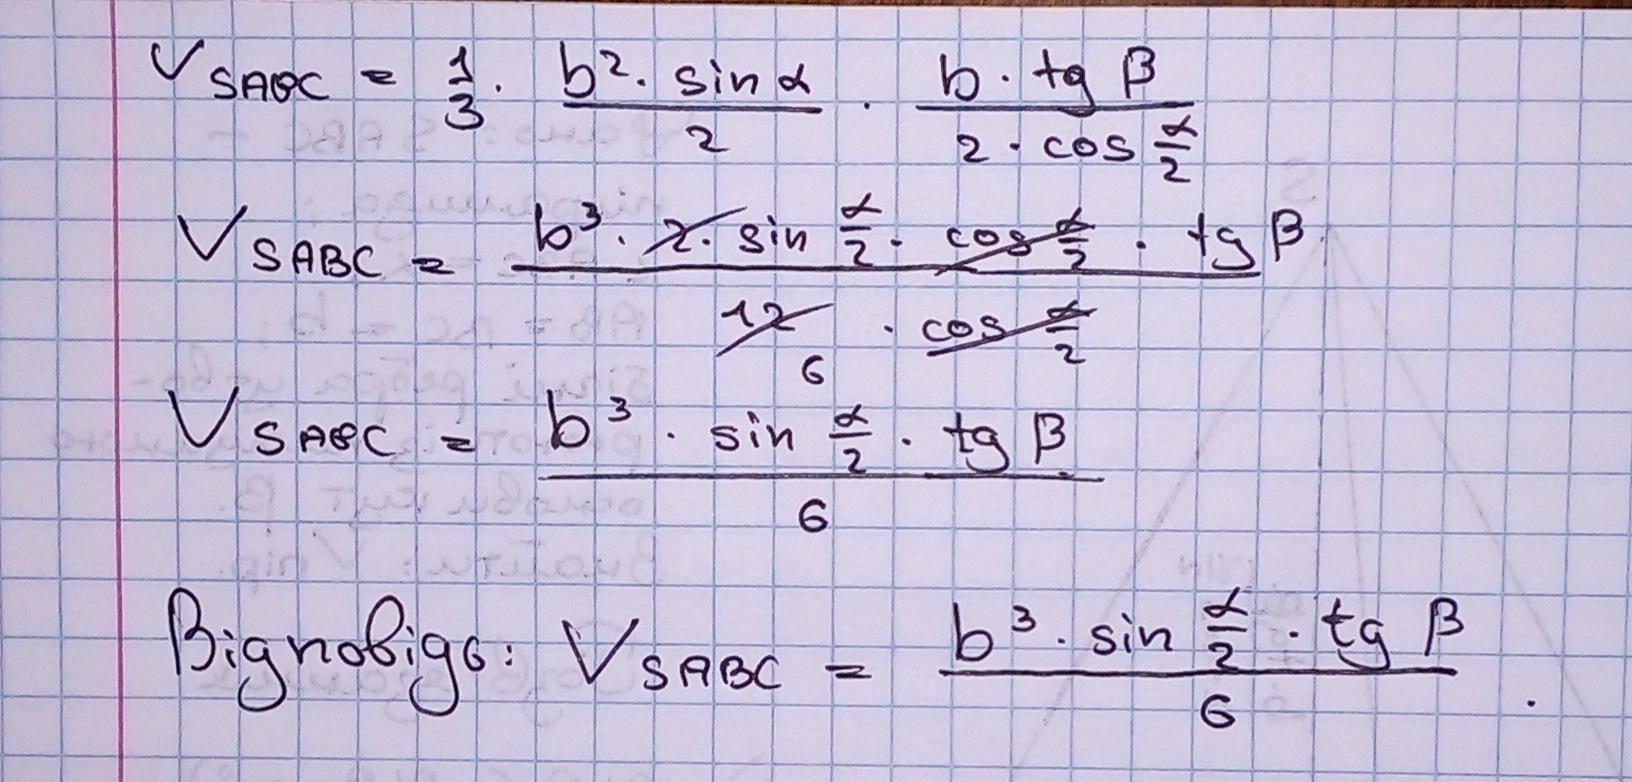 V SABC = 1/3 · (b² · sin α)/2 · (b · tg β)/(2 · cos α/2)
V SABC = (b³ · 2 · sin α/2 · cos α/2 · tg β)/(12 · cos α/2)
6
V SABC = (b³ · sin α/2 · tg β)/6
Відповідь: V SABC = (b³ · sin α/2 · tg β)/6 .